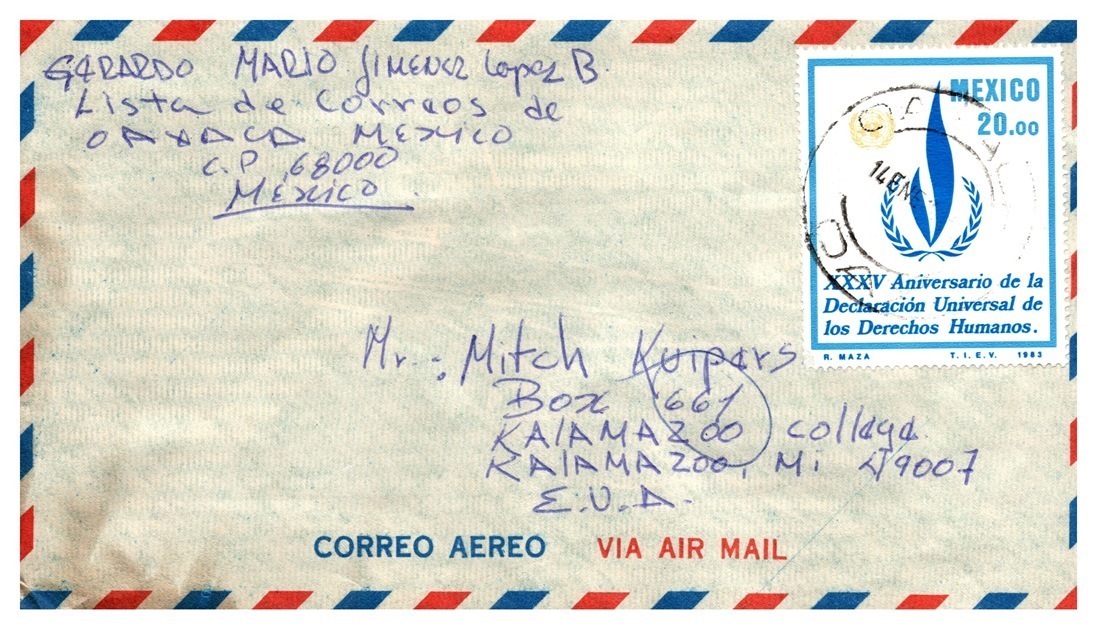 GERARDO MARIO JIMENEZ Lopez B.
Lista de Correos de
OAXACA MEXICO
C.P. 68000
MÉXICO.
MEXICO
20.00
OAXACA
14 ENE
XXXV Aniversario de la
Declaración Universal de
los Derechos Humanos.
R. MAZA T. I. E. V. 1983
Mr.: Mitch Kuipers
Box 661
KAlAMAZOO College.
KAlAMAZOO, Mi 49007
E.U.A.
CORREO AEREO VIA AIR MAIL